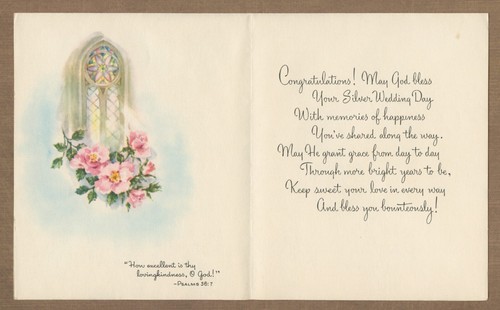 "How excellent is thy
lovingkindness, O God!"
—PSALMS 36:7
Congratulations! May God bless
Your Silver Wedding Day
With memories of happiness
You've shared along the way.
May He grant grace from day to day
Through more bright years to be,
Keep sweet your love in every way
And bless you bounteously!